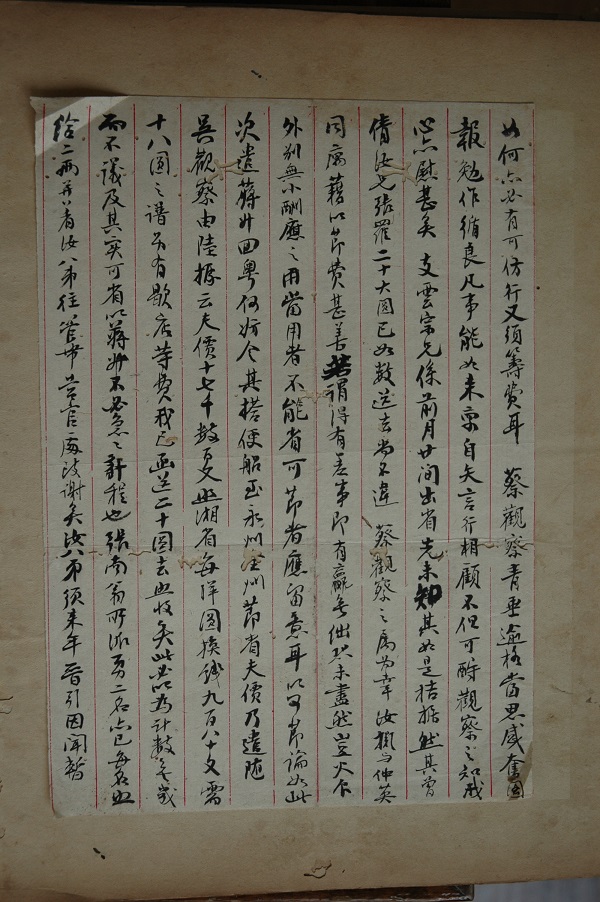 如何亦必有可仿行又須籌費耳　蔡觀察青垂逾格當思感奮圖
報勉作循良凡事能如來稟自矢言行相顧不但可酬觀察之知我
心亦慰甚矣　支雲宗兄係前月廿間出省先未知其如是拮据然其曾
倩汝七張羅二十大圓已如數送去尚不違　蔡觀察之屬為幸汝擬與仲英
同寓藉以節費甚善　謂得有差事即有贏無絀恐未盡然豈火食
外別無小酬應之用當用者不能省可節者應留意耳以可節論如此
次遣蔣升回粵何妨令其搭便船至永州全州節省夫價乃遣隨
吳觀察由陸據云夫價十七千數百文照湘省每洋圓換錢九百八十文需
十八圓之譜另有歇店等費我已函送二十圓去照收矣此以為計數
而不議及其實可省以蔣升不必急之計程也張南翁所派勇二名亦已每名照
給二兩 者汝八弟往 致謝矣汝八弟須來年 引因聞暫